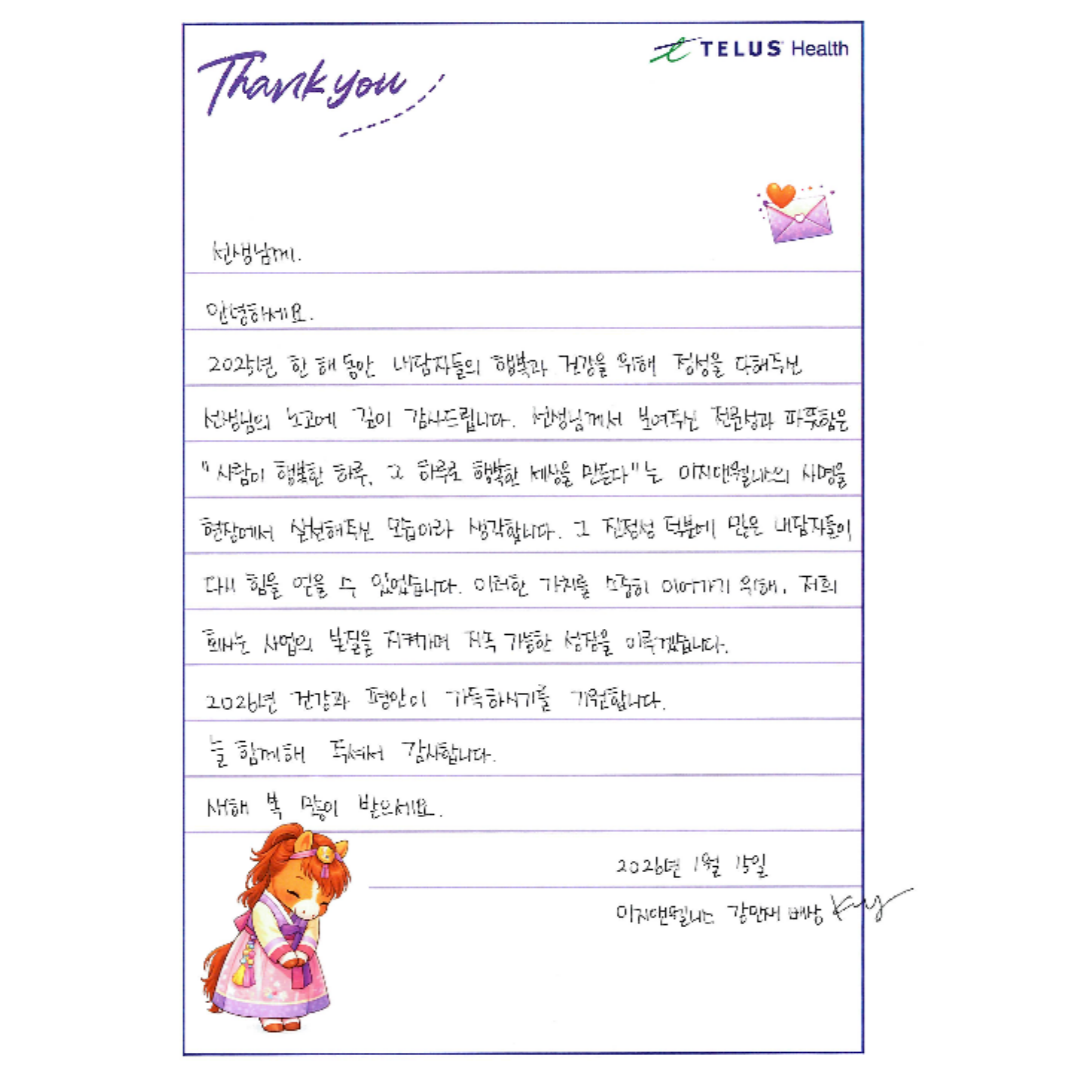 Thank you
TELUS Health
선생님께.
안녕하세요.
2025년 한 해 동안 내담자들의 행복과 건강을 위해 정성을 다해주신
선생님의 노고에 깊이 감사드립니다. 선생님께서 보여주신 전문성과 따뜻함은
"사람이 행복한 하루, 그 하루로 행복한 세상을 만든다"는 이지앤웰니스의 사명을
현장에서 실천해주신 모습이라 생각합니다. 그 진정성 덕분에 많은 내담자들이
다시 힘을 얻을 수 있었습니다. 이러한 가치를 소중히 이어가기 위해, 저희
회사는 사업의 본질을 지켜가며 지속 가능한 성장을 이룩겠습니다.
2026년 건강과 평안이 가득하시기를 기원합니다.
늘 함께해 주셔서 감사합니다.
새해 복 많이 받으세요.
2026년 1월 15일
이지앤웰니스 강민재 배상